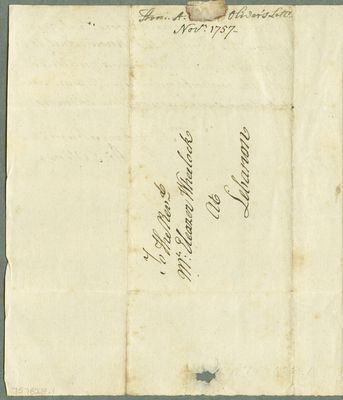 Hon. A. Oliver's Lett.
Nov.r 1757-
To The Rev.d
Mr. Eleazer Whealock
At
Lebanon